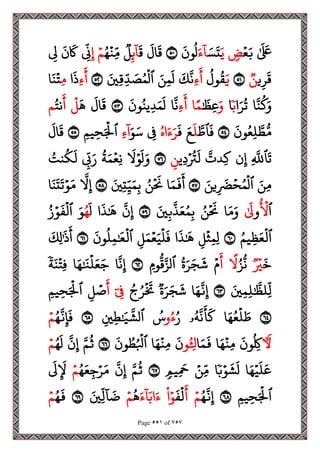 عَلَىٰ بَعْضٍ يَتَسَآءَلُونَ ٥٠ قَالَ قَآئِلٌ مِّنْهُمْ إِنِّى كَانَ لِى
قَرِينٌ ٥١ يَقُولُ أَءِنَّكَ لَمِنَ ٱلْمُصَدِّقِينَ ٥٢ أَءِذَا مِتْنَا
وَكُنَّا تُرَابًا وَعِظَٰمًا أَءِنَّا لَمَدِينُونَ ٥٣ قَالَ هَلْ أَنتُم
مُّطَّلِعُونَ ٥٤ فَٱطَّلَعَ فَرَءَاهُ فِى سَوَآءِ ٱلْجَحِيمِ ٥٥ قَالَ
تَٱللَّهِ إِن كِدتَّ لَتُرْدِينِ ٥٦ وَلَوْلَا نِعْمَةُ رَبِّى لَكُنتُ
مِنَ ٱلْمُحْضَرِينَ ٥٧ أَفَمَا نَحْنُ بِمَيِّتِينَ ٥٨ إِلَّا مَوْتَتَنَا
ٱلْأُولَىٰ وَمَا نَحْنُ بِمُعَذَّبِينَ ٥٩ إِنَّ هَٰذَا لَهُوَ ٱلْفَوْزُ
ٱلْعَظِيمُ ٦٠ لِمِثْلِ هَٰذَا فَلْيَعْمَلِ ٱلْعَٰمِلُونَ ٦١ أَذَٰلِكَ
خَيْرٌ نُّزُلًا أَمْ شَجَرَةُ ٱلزَّقُّومِ ٦٢ إِنَّا جَعَلْنَٰهَا فِتْنَةً
لِّلظَّٰلِمِينَ ٦٣ إِنَّهَا شَجَرَةٌ تَخْرُجُ فِىٓ أَصْلِ ٱلْجَحِيمِ
٦٤ طَلْعُهَا كَأَنَّهُۥ رُءُوسُ ٱلشَّيَٰطِينِ ٦٥ فَإِنَّهُمْ
لَءَاكِلُونَ مِنْهَا فَمَالِـُٔونَ مِنْهَا ٱلْبُطُونَ ٦٦ ثُمَّ إِنَّ لَهُمْ
عَلَيْهَا لَشَوْبًا مِّنْ حَمِيمٍ ٦٧ ثُمَّ إِنَّ مَرْجِعَهُمْ لَإِلَى
ٱلْجَحِيمِ ٦٨ إِنَّهُمْ أَلْفَوْا۟ ءَابَآءَهُمْ ضَآلِّينَ ٦٩ فَهُمْ
Page ٥٥١ of ٧٥٧